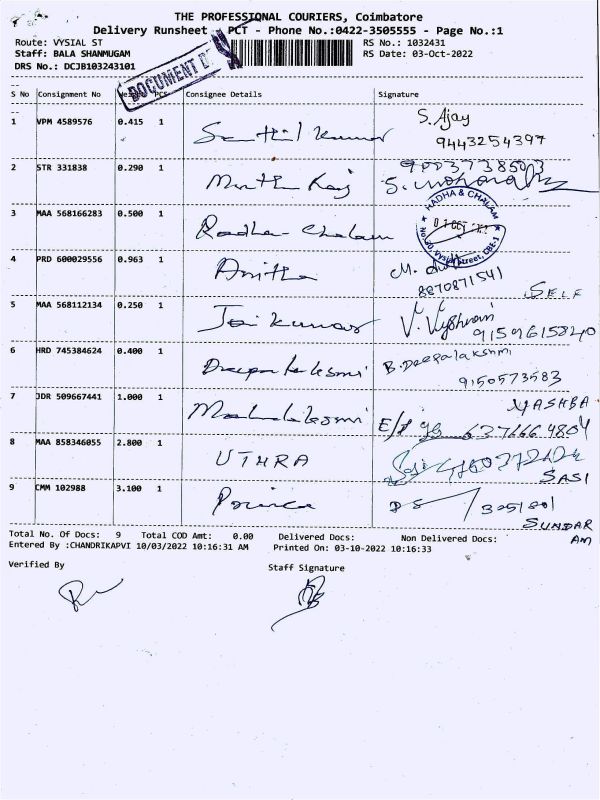 THE PROFESSIONAL COURIERS, Coimbatore
Delivery Runsheet - PCT - Phone No.:0422-3505555 - Page No.:1
Route: VYSIAL ST RS No.: 1032431
Staff: BALA SHANMUGAM RS Date: 03-Oct-2022
DRS No.: DCJB103243101
DOCUMENT
S No Consignment No Weight PCS Consignee Details Signature
1 VPM 4589576 0.415 1 Senthil Kumar S. Ajay
9443254397
2 STR 331838 0.290 1 Muthu Raj 9003738503
S. Mohana
3 MAA 568166283 0.500 1 Radha Chalam RADHA & CHALAM
No.20, Vysial Street, CBE-1
4 PRD 600029556 0.963 1 Anitha M.
8870871541
SELF
5 MAA 568112134 0.250 1 Jai Kumar V. Vyshnavi
9159615820
6 HRD 745384624 0.400 1 Deepa lakshmi B. Deepalakshmi
9150573583
7 JDR 509667441 1.000 1 Mahalakshmi YASHBA
6376664804
8 MAA 858346055 2.800 1 UTHRA
SASI
9 CMM 102988 3.100 1 Prince
SUNDAR
AM
Total No. Of Docs: 9 Total COD Amt: 0.00 Delivered Docs: Non Delivered Docs:
Entered By :CHANDRIKAPVI 10/03/2022 10:16:31 AM Printed On: 03-10-2022 10:16:33
Verified By Staff Signature